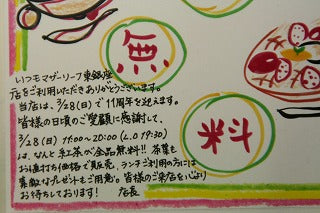 無
料
いつもマザーリーフ東銀座
店をご利用いただきありがとうございます。
当店は、3/28(日)で11周年を迎えます。
皆様の日頃のご愛顧に感謝して、
3/28(日) 11:00~20:00 (L.O 19:30)
は、なんと 手工茶が全品無料!! 茶葉も
お値打ち価格で販売。ランチご利用の方には
素敵なプレゼントもご用意。皆様のご来店を心より
お待ちしております! 店長